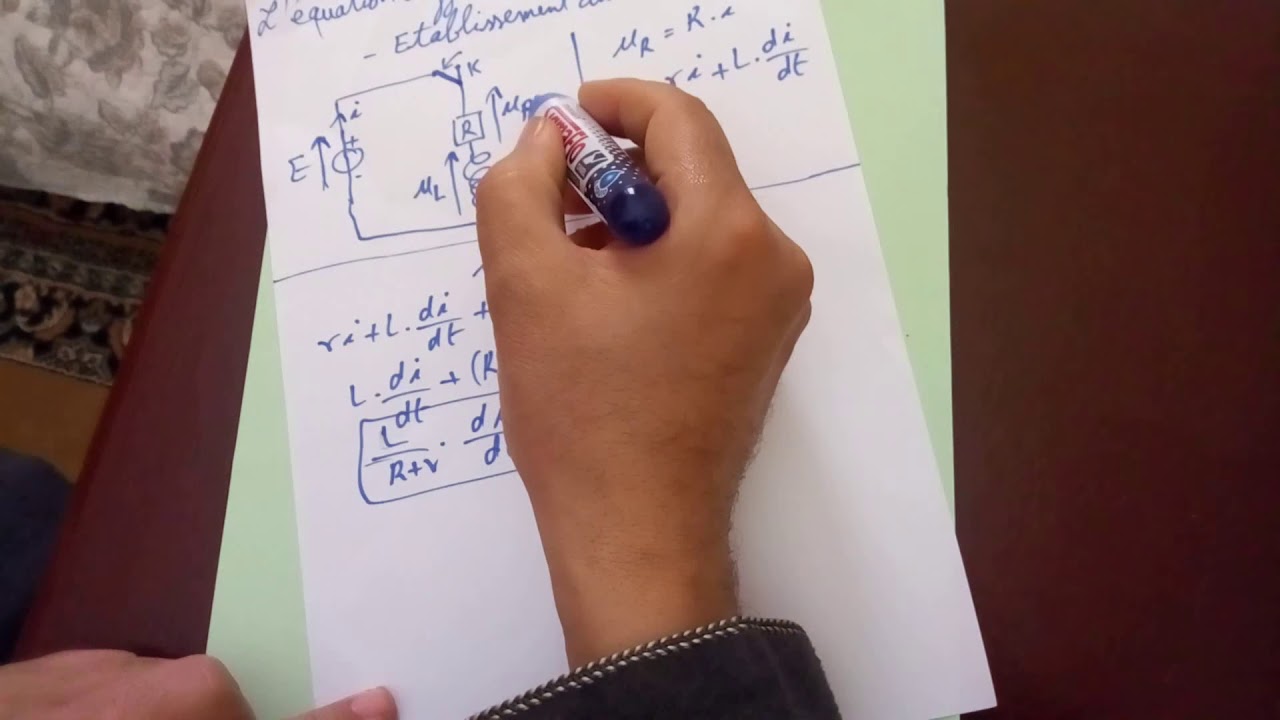 L'équation
- Etablissement
K
i
+
E
-
R
uR
uL
uR = R.i
ri + L.di/dt
ri + L.di/dt +
L.di/dt + (R
L/R+r . di/d